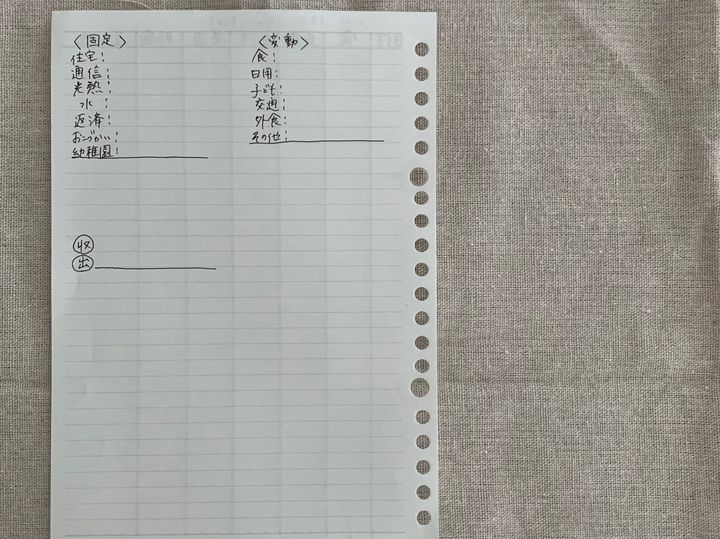 〈固定〉
住宅:
通信:
光熱:
水:
返済:
おこづかい:
幼稚園:
〈変動〉
食:
日用:
子ども:
交通:
外食:
その他:
収
出